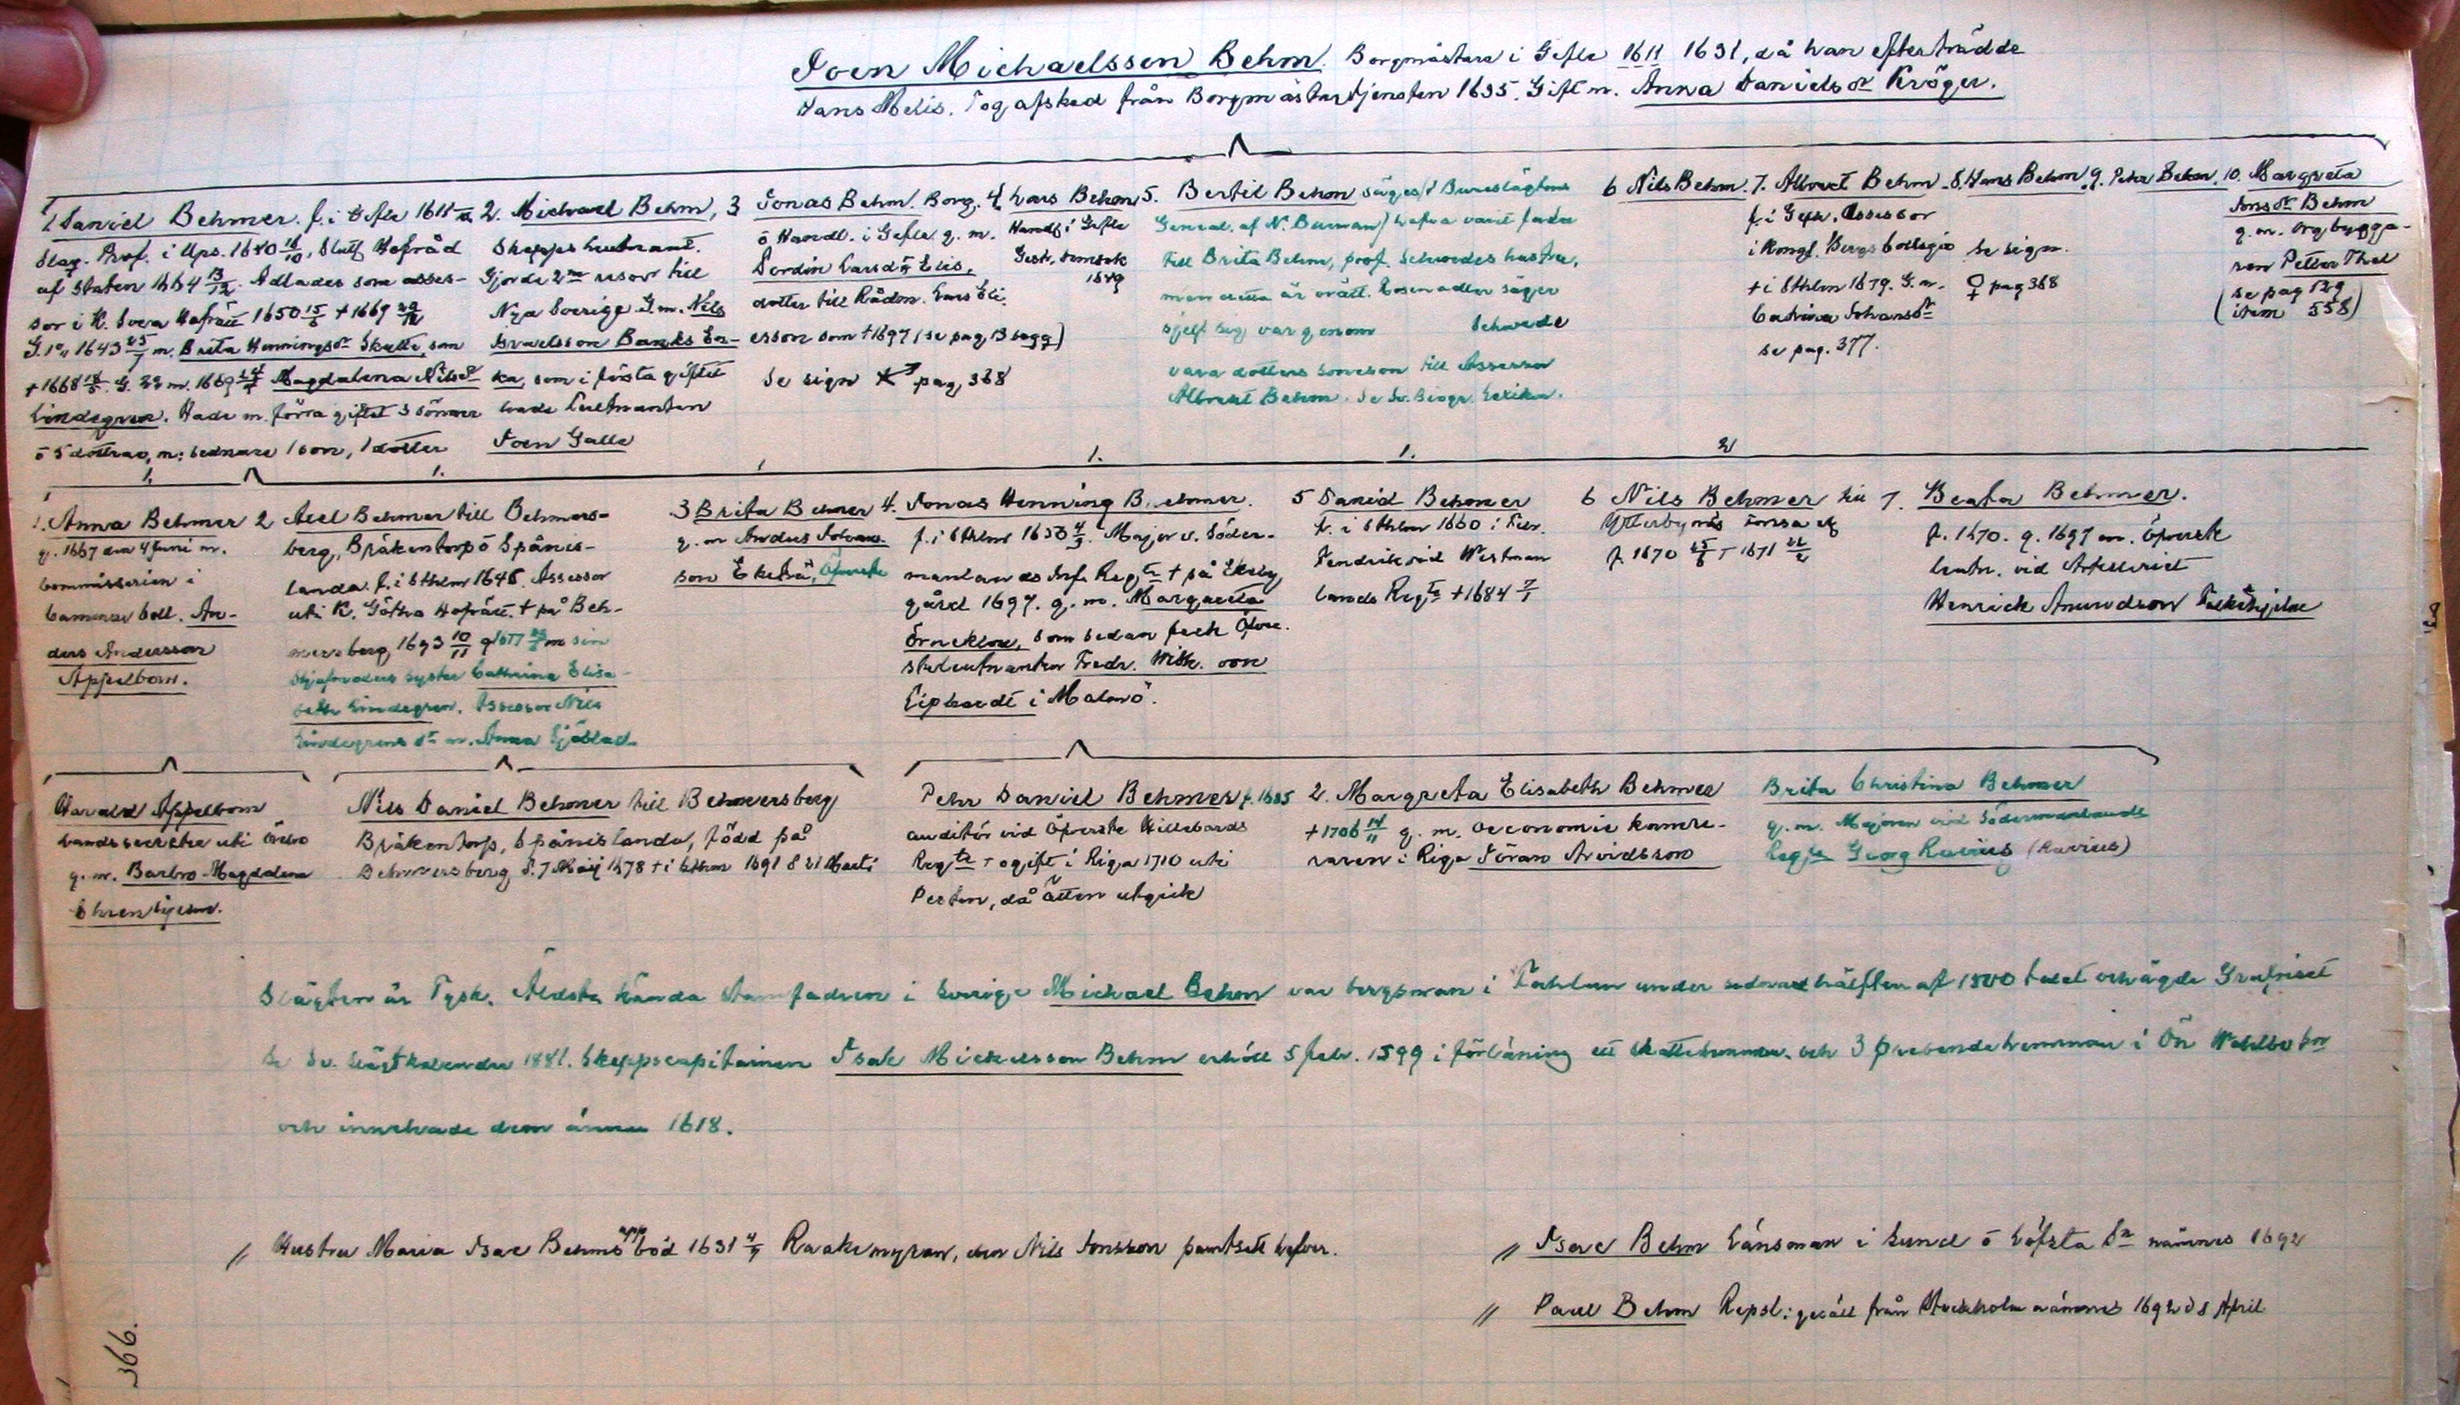 Joen Michaelsson Behm. Borgmästare i Gefle 1611 1631, då han efterträdde
Hans Melis. Tog afsked från Borgmästartjensten 1635. Gift m. Anna Danielsdr Kröger.
1 Daniel Behmer. f. i Gefle 1611
Slag. Prof. i Ups. 1640 16/10, Slutl. Hofråd
af Staten 1654 13/12. Adlades som asses-
sor i K. Svea Hofrätt 1650 15/6 †1669 29/12
G. 1o 1643 23/7 m. Brita Henningsdr Skytte, som
†1668 18/5. G. 2o m. 1669 Magdalena Nilsdr
Lindegren. Hade m. förra giftet 3 söner
o 5 döttrar, m. sednare 1 son, 1 dotter
2. Michael Behm,
Skepps Leutnant.
Gjorde 2ne resor till
Nya Sverige. G. m. Nils
Israelsson Banks En-
ka, som i första giftet
hade Leutnanten
Joen Galle
3 Jonas Behm. Borg.
o Handl. i Gefle g. m.
Dordin Larsdr Elis,
dotter till Rådm. Lars Eli-
esson som †1697 (se pag. 13
Se sign pag. 368
4. Lars Behm
Handl. i Gefle
Gestr. domsok
1649
5. Bertil Behm säges (i Bureslägtens
Geneal. af N. Burman) hafva varit fader
till Brita Behm, prof. Schwedes hustru,
men detta är orätt. Rosenadler säger
sjelf sig var genom Schwede
vara dotters soneson till Assessor
Albrekt Behm. Se Sv. Biogr. Lexikon.
6 Nils Behm.
7. Albrekt Behm.
f. i Gefle. Assessor
i Kongl. Bergs Collegio
† i Sthlm 1679. G. m.
Catrina Johansdr
se pag. 377.
8. Hans Behm.
Se sign.
♀ pag 368
9. Pehr Behm.
10. Margreta
Jonsdr Behm
g. m. Orgbygga-
ren Petter Thel
(se pag 529
item 558)
1. 1. 1. 1. 1. 2
1. Anna Behmer
g. 1667 den 4 Juni m.
Commissarien i
Cammar Coll. An-
ders Andersson
Appelbom.
2 Axel Behmer till Behmers-
berg, Bräkentorp o Spånis-
landa. f. i Sthlm 1645. Assessor
uti K. Götha Hofrätt. † på Beh-
mersberg 1693 10/11 g 1677 m sin
stjufmoders syster Cathrina Elisa-
beth Lindegren. Assessor Nils
Lindegrens dr m. Anna Sjöblad.
3 Brita Behmer
g. m Anders Johans-
son Eketrä, Öfverste
4. Jonas Henning Behmer.
f. i Sthlm 1656 4/3. Major v. Söder-
manlands Inf. Regte † på Ekeby
gård 1697. g. m. Margareta
Örneklou, som sedan feck Öfver-
steleutnanten Fredr. Wilh. von
Liphardt i Malmö.
5 Daniel Behmer
f. i Sthlm 1660 i Febr.
Fendrik vid Westman
lands Regte †1684 7/1
6 Nils Behmer till
Ytterbynäs Forssa
f. 1670 25/6 †1671 22/2
7. Beata Behmer.
f. 1670. g. 1697 m. Öfverste
leutn. vid Artilleriet
Henrick Amundson
Harald Appelbom
Landssecreter uti Örebro
g. m. Barbro Magdalena
Ehrenstjerna.
Nils Daniel Behmer till Behmersberg
Bräkentorp, Spånislanda, född på
Behmersberg d. 7 Maij 1678 † i Sthlm 1691 d 21 Martii
Pehr Daniel Behmer f. 1685
auditör vid Öfverste Hillebards
Regte † ogift i Riga 1710 uti
Pesten, då ätten utgick
2. Margreta Elisabeth Behmer
†1706 14/11 g. m. Oeconomie kamre-
raren i Riga Jöran Arvidsson
Brita Christina Behmer
g. m. Majoren vid Södermanlands
Regte Georg Ravius (Ravius)
Slägten är Tysk. Äldsta kända stamfadren i Sverige Michael Behm var bergsman i Fahlun under sednare hälften af 1500 talet och ägde Grufriset
Se Sv. Slägtkalender 1881. Skeppscapitainen Isak Mickelsson Behm erhöll 5 febr. 1599 i förläning ett skattehemman och 3 prebendehemman i Ön Wahlbo Sn
och innehade dem ännu 1618.
// Hustru Maria Isac Behms upp böd 1631 4/7 Raakemyran, den Nils Jonsson pantsatt hafver.
// Isac Behm Länsman i Sund o Löfsta Sn nämnes 1692
// Paul Behm Repsl: gesäll från Stockholm nämnes 1692 d 8 April
366.